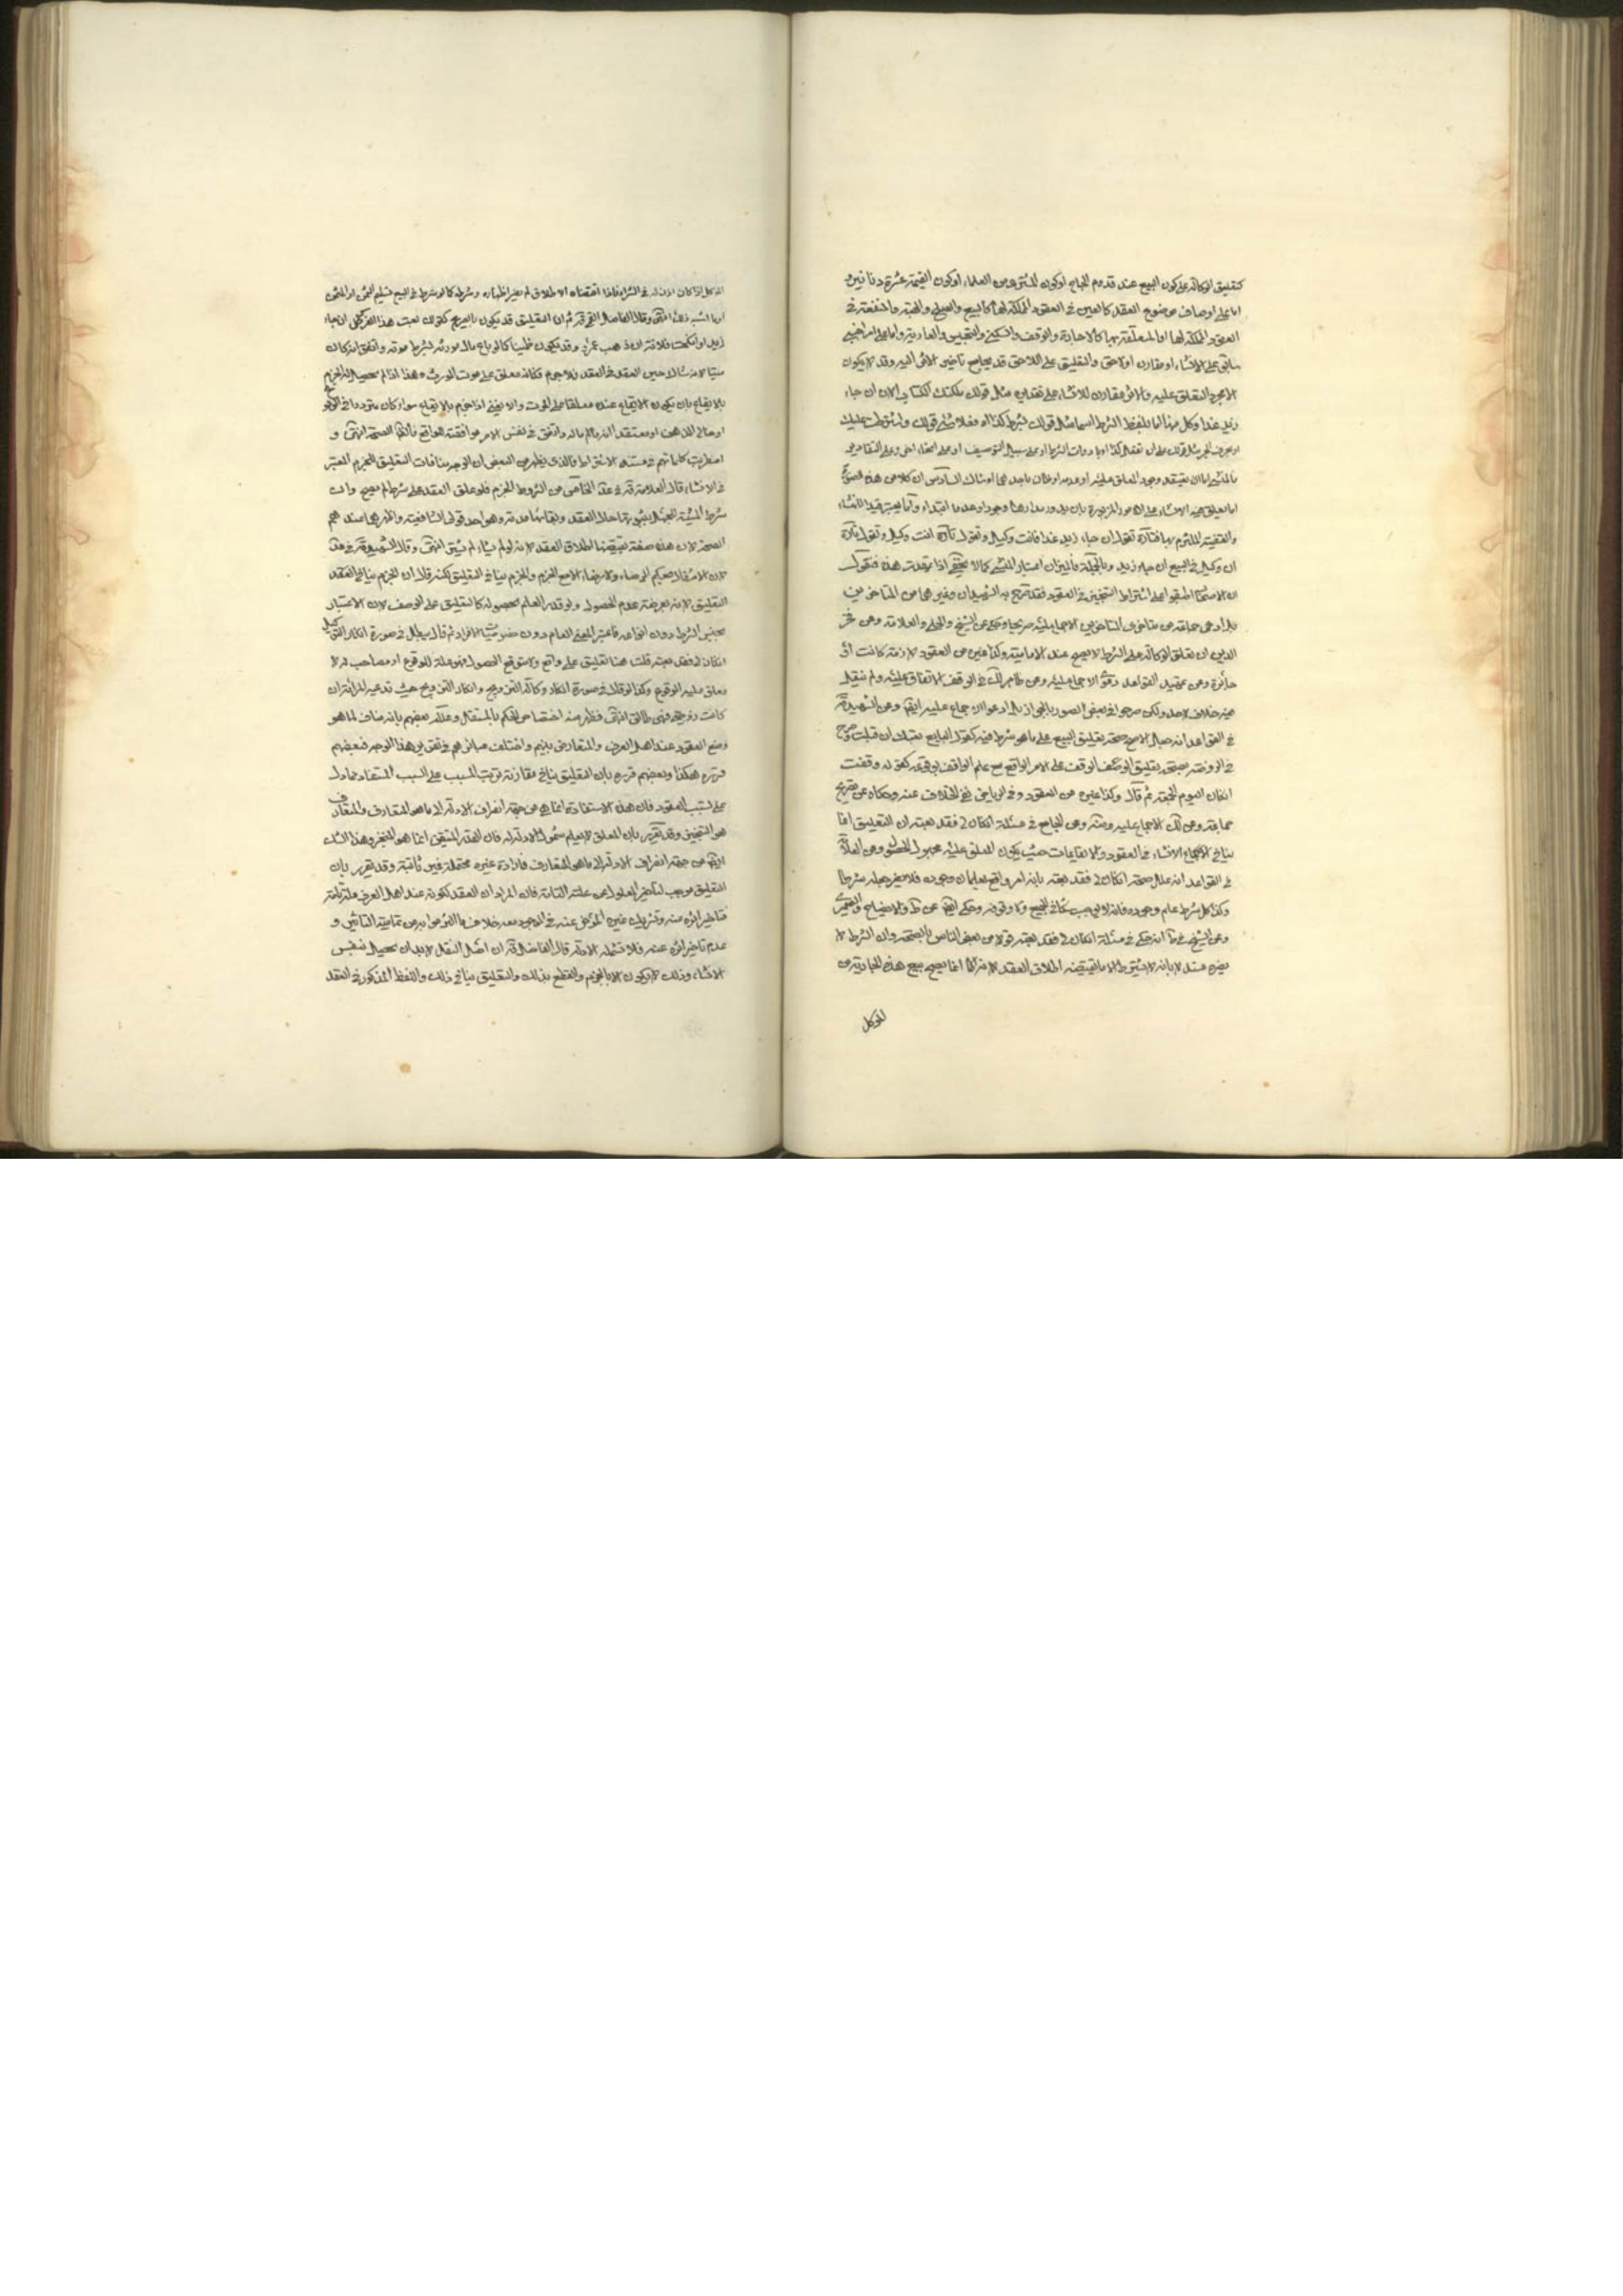 كتعليق الوكالة على كون البيع عند قدوم الحاج او كون المشترى من العلماء او كون القيمة عشرة دنانير و
اما على اوصاف موضوع العقد كالعين فى العقود المملكة لها كالبيع والصلح والهبة والمنفعة فى
العقود المملكة لها او المتعلقة بها كالاجارة والوقف والسكنى والتحبيس والعارية واما على امر اجنبى
سابق على الانشاء او مقارن او لاحق والتعليق على اللاحق قد يجامع تاخير الاثر اليه وقد لا يكون
الا مجرد التعليق عليه والاثر مقارن للانشاء على تقديره مثل قولك ملكتك الكتاب الان ان جاء
زيد غدا وكل منها اما بلفظ الشرط اسما مثل قولك بشرط كذا او فعلا مثل قولك واشترطت عليك
او بحرف الجر مثل قولك على ان تفعل كذا او بادوات الشرط او على سبيل التوصيف او على انحاء اخر وعلى التقادير
فالمنشئ اما ان يعتقد وجود المعلق عليه او عدمه او ظان باحدهما او شاك السادس ان كلا من هذه الصور
اما تعليق فيه الانشاء على الامور المزبورة بان يدور مدارها وجودا وعدما ابتداء واما يعتبر قيدا للمنشاء
والقضية الملتزم بها فتارة تقول ان جاء زيد غدا فانت وكيل وتقول تارة انت وكيل وتقول تارة
ان وكيل فى البيع ان جاء زيد وبالجملة فالميزان اعتبار المنشئ كما لا يخفى اذا عرفت هذه فنقول
ان الاصحاب اطبقوا على اشتراط التنجيز فى العقود فقد صرح به الشهيدان وغيرهما من المتاخرين
بل ادعى جماعة من متاخرى المتاخرين الاجماع عليه صريحا وحكى عن الشيخ والحلى والعلامة وعن فخر
الدين ان تعليق الوكالة على الشرط لا يصح عند الامامية وكذا غيره من العقود لازمة كانت او
جائزة وعن تمهيد القواعد دعوى الاجماع عليه وعن ظاهر لك فى الوقف الاتفاق عليه ولم ينقل
فيه خلاف لاحد ولكن صرحوا فى بعض الصور بالجواز بل ادعوا الاجماع عليه ايضا وعن الشهيد ره
فى القواعد انه جعل الاصح صحة تعليق البيع على ما هو شرط فيه كقول البايع بعتك ان قبلت وصرح
فى الروضة بصحة تعليق الوقف على الامر الواقع مع علم الواقف بوقوعه كقوله وقفت
ان كان اليوم الجمعة ثم قال وكذا غيره من العقود وفى الرياض نفى الخلاف عنه وحكاه عن تصريح
جماعة وعن لك الاجماع عليه وعنه وعن الجامع فى مسئلة ان كان لى فقد بعته ان التعليق انما
ينافى الانشاء فى العقود والايقاعات حيث يكون المعلق عليه مجهول الحصول وعن العلامة
فى القواعد انه علل صحة ان كان لى فقد بعته بانه امر واقع يعلمان وجوده فلا يضر جعله شرطا
وكذا كل شرط علم وجوده فانه لا يوجب شكا فى البيع ولا وقوفه وحكى ايضا عن ط والايضاح
وعن الشيخ فى ط انه حكى فى مسئلة ان كان لى فقد بعته قولا من بعض الناس بالصحة وان الشرط لا
يضره مستدلا بانه لا يشترط الا ما يقتضيه اطلاق العقد لانه انما يصح بيع هذه الجارية من
للموكل
الموكل اذا كان اذن له فى الشراء فاذا اقتضاه الاطلاق لم يضر اظهاره وشرطه كما لو شرط فى البيع تسليم الثمن او المثمن
او ما اشبه ذلك انتهى وقال الفاضل القمى قده ثم ان التعليق قد يكون بالصريح كقولك بعت هذا الفرس ان جاء
زيد او انكحت فلانة ان ذهب عمرو وقد يكون ضمنيا كما لو باع مال مورثه بشرط موته واتفق انه كان
ميتا لانه شاك حين العقد فى العقد فلا جزم فكانه معلق على موت المورث وهذا اذا لم يحصل له الجزم
بالايقاع بان يكون الايقاع عنده معلقا على الموت والا فيصح اذا جزم بالايقاع سواء كان مترددا فى
او خالى الذهن او معتقدا انه مال ماله واتفق فى نفس الامر موافقته للواقع فالظاهر الصحة انتهى و
اضطربت كلماتهم فى مستند الاشتراط فالذى يظهر من البعض ان الوجه منافات التعليق للجزم المعتبر
فى الانشاء قال العلامة قده فى عد الخامس من الشروط الجزم فلو علق العقد على شرط لم يصح وان
شرط المشية للجهل بثبوتها حال العقد وبقائها مدته وهو احد قولى الشافعية واظهرهما عندهم
الصحة لان هذه صفة يقتضيها اطلاق العقد لانه لو لم يشاء لم يشتر انتهى وقال الشهيد ره فى عد
لان الانتقال بحكم الرضاء ولا رضاء الا مع الجزم والجزم ينافى التعليق لكنه قال ان الجزم ينافى العقد
التعليق لانه بعرضة عدم الحصول ولو قدر العلم بحصوله كالتعليق على الوصف لان الاعتبار
بجنس الشرط دون انواعه فاعتبر المعنى العام دون خصوصيات الافراد ثم قال يبطل فى صورة انكار التوكيل
ان كان لى فقد بعته قلت هنا تعليق على واقع ولا متوقع الحصول فهو علة للوقوع او مصاحب له لا
معلق عليه الوقوع وكذا لو قلنا فى صورة انكار وكالة التزويج وانكار التزويج حيث تدعيه المراة ان
كانت زوجتى فهى طالق انتهى فظهر منه اختصاص الحكم بالمستقبل وعلله بعضهم بانه مناف لما هو
وضع العقود عند اهل العرف والمتعارف بينهم واختلفت عبائرهم فى تقرير هذا الوجه فبعضهم
قرره هكذا وبعضهم قرره بان التعليق ينافى مقارنة ترتب المسبب على السبب المستفاد مما دل
على تسبب العقود فان هذه الاستفادة انما هى من جهة انصراف الادلة الى ما هو المتعارف والمتعارف
هو التنجيز وقد يقرر بان المعلق لا يعلم شمول الادلة له فان القدر المتيقن انما هو المنجز وهذا الشك
ايضا من جهة انصراف الادلة الى ما هو المتعارف فارادة غيره محتملة غير ثابتة وقد يقرر بان
التعليق موجب لتاخير المعلول عن علته التامة فان المراد ان العقد لكونه عند اهل العرف علة تامة
فتاخير اثره منه وتنزيله منزلة غيره المؤخر عنه فى الوجود معه خلاف ما التزموا به من تمامية التاثير و
عدم تاخير اثره عنه فلا تشمله الادلة قال الفاضل قده ان اصل النقل لا بد ان يحصل بنفس
الانشاء وذلك لا يكون الا بالجزم والقطع بذلك والتعليق ينافى ذلك واللفظ المذكور فى العقد